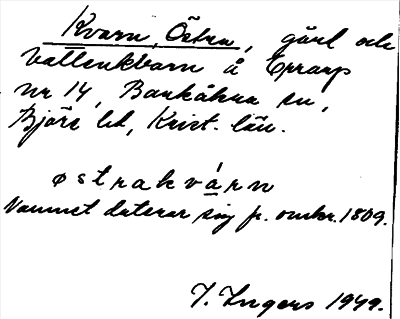 Kvarn, Östra, gård och
vattenkvarn å Erraup
nr 14, Barkåkra sn,
Bjäre hd, Krist. län.
østrakvárn
Namnet daterar sig fr. omkr. 1809.
I. Ingers 1949.